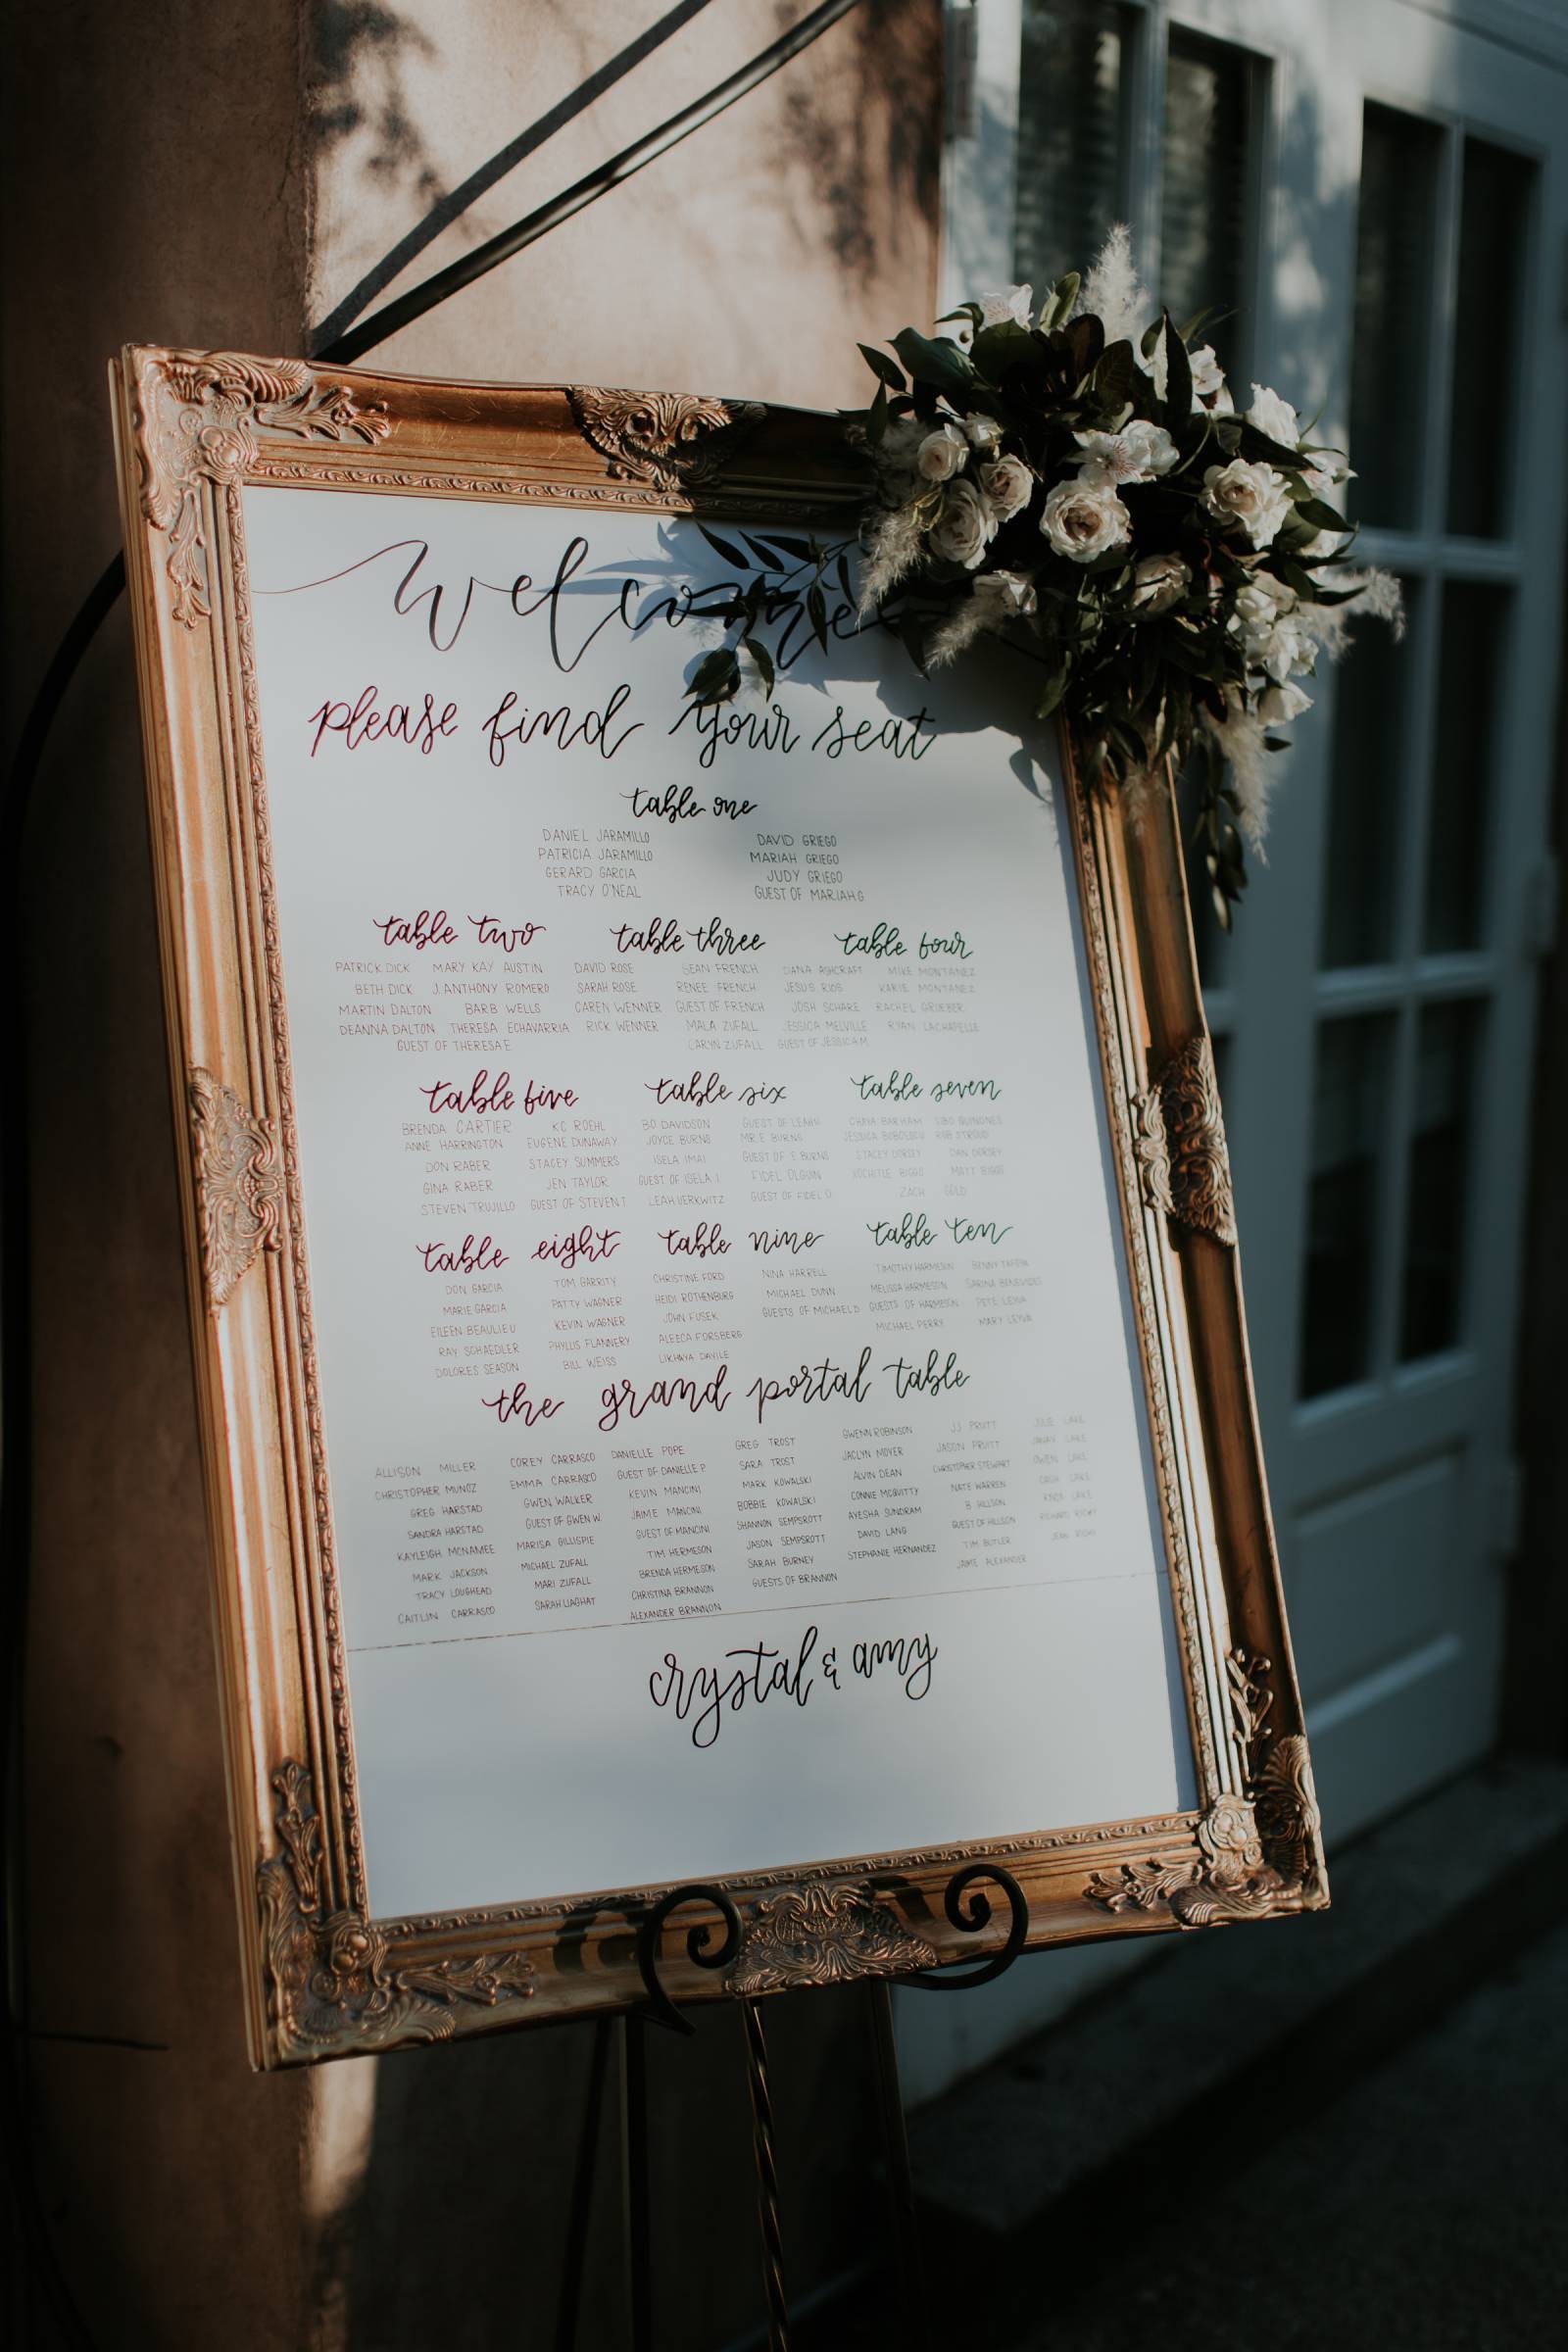 welcome
please find your seat
table one
DANIEL JARAMILLO DAVID GRIEGO
PATRICIA JARAMILLO MARIAH GRIEGO
GERARD GARCIA JUDY GRIEGO
TRACY O'NEAL GUEST OF MARIAH G
table two
PATRICK DICK MARY KAY AUSTIN
BETH DICK J. ANTHONY ROMERO
MARTIN DALTON BARB WELLS
DEANNA DALTON THERESA ECHAVARRIA
GUEST OF THERESA E
table three
DAVID ROSE SEAN FRENCH
SARAH ROSE RENEE FRENCH
CAREN WENNER GUEST OF FRENCH
RICK WENNER MALA ZUFALL
CARYN ZUFALL
table four
DANA ASHCRAFT MIKE MONTANEZ
JESUS RIOS KARIE MONTANEZ
JOSH SCHARE RACHEL GRUEBER
JESSICA MELVILLE RYAN LACHAPELLE
GUEST OF JESSICA M
table five
BRENDA CARTIER KC ROEHL
ANNE HARRINGTON EUGENE DUNAWAY
DON RABER STACEY SUMMERS
GINA RABER JEN TAYLOR
STEVEN TRUJILLO GUEST OF STEVEN T
table six
BO DAVIDSON GUEST OF LEAH
JOYCE BURNS MR E BURNS
ISELA IMAI GUEST OF E BURNS
GUEST OF ISELA I FIDEL OLGUIN
LEAH VERKWITZ GUEST OF FIDEL O
table seven
BARHAM QUINONES
JESSICA ROB STROUD
STACEY DORSEY DAN DORSEY
XOCHITLE BIGGS MATT BIGGS
ZACH GOLD
table eight
DON GARCIA TOM GARRITY
MARIE GARCIA PATTY WAGNER
EILEEN BEAULIEU KEVIN WAGNER
RAY SCHAEDLER PHYLLIS FLANNERY
DOLORES SEASON BILL WEISS
table nine
CHRISTINE FORD NINA HARRELL
HEIDI ROTHENBURG MICHAEL DUNN
JOHN FUSEK GUESTS OF MICHAEL D
ALEECA FORSBERG
LIKHAYA DAYILE
table ten
TIMOTHY HARMESON BENNY
MELISSA HARMESON SABINA BENEVIDES
GUESTS OF HARMESON PETE LEYVA
MICHAEL PERRY MARY LEYVA
the grand portal table
ALLISON MILLER
CHRISTOPHER MUNOZ
GREG HARSTAD
SANDRA HARSTAD
KAYLEIGH MCNAMEE
MARK JACKSON
TRACY LOUGHEAD
CAITLIN CARRASCO
COREY CARRASCO
EMMA CARRASCO
GWEN WALKER
GUEST OF GWEN W
MARISA GILLISPIE
MICHAEL ZUFALL
MARI ZUFALL
SARAH LIAGHAT
DANIELLE POPE
GUEST OF DANIELLE P
KEVIN MANCINI
JAIME MANCINI
GUEST OF MANCINI
TIM HERMESON
BRENDA HERMESON
CHRISTINA BRANNON
ALEXANDER BRANNON
GREG TROST
SARA TROST
MARK KOWALSKI
BOBBIE KOWALSKI
SHANNON SEMPSROTT
JASON SEMPSROTT
SARAH BURNEY
GUESTS OF BRANNON
GWENN ROBINSON
JACLYN MOYER
ALVIN DEAN
CONNIE MCQUITTY
AYESHA SUNDRAM
DAVID LANG
STEPHANIE HERNANDEZ
JJ PRUITT
JASON PRUITT
CHRISTOPHER STEWART
NATE WARREN
B HILLSON
GUEST OF HILLSON
TIM BUTLER
JAIME ALEXANDER
JULIE LAKE
LAKE
OWEN LAKE
CASH LAKE
KNOX LAKE
RICHARD
JEAN
crystal & amy